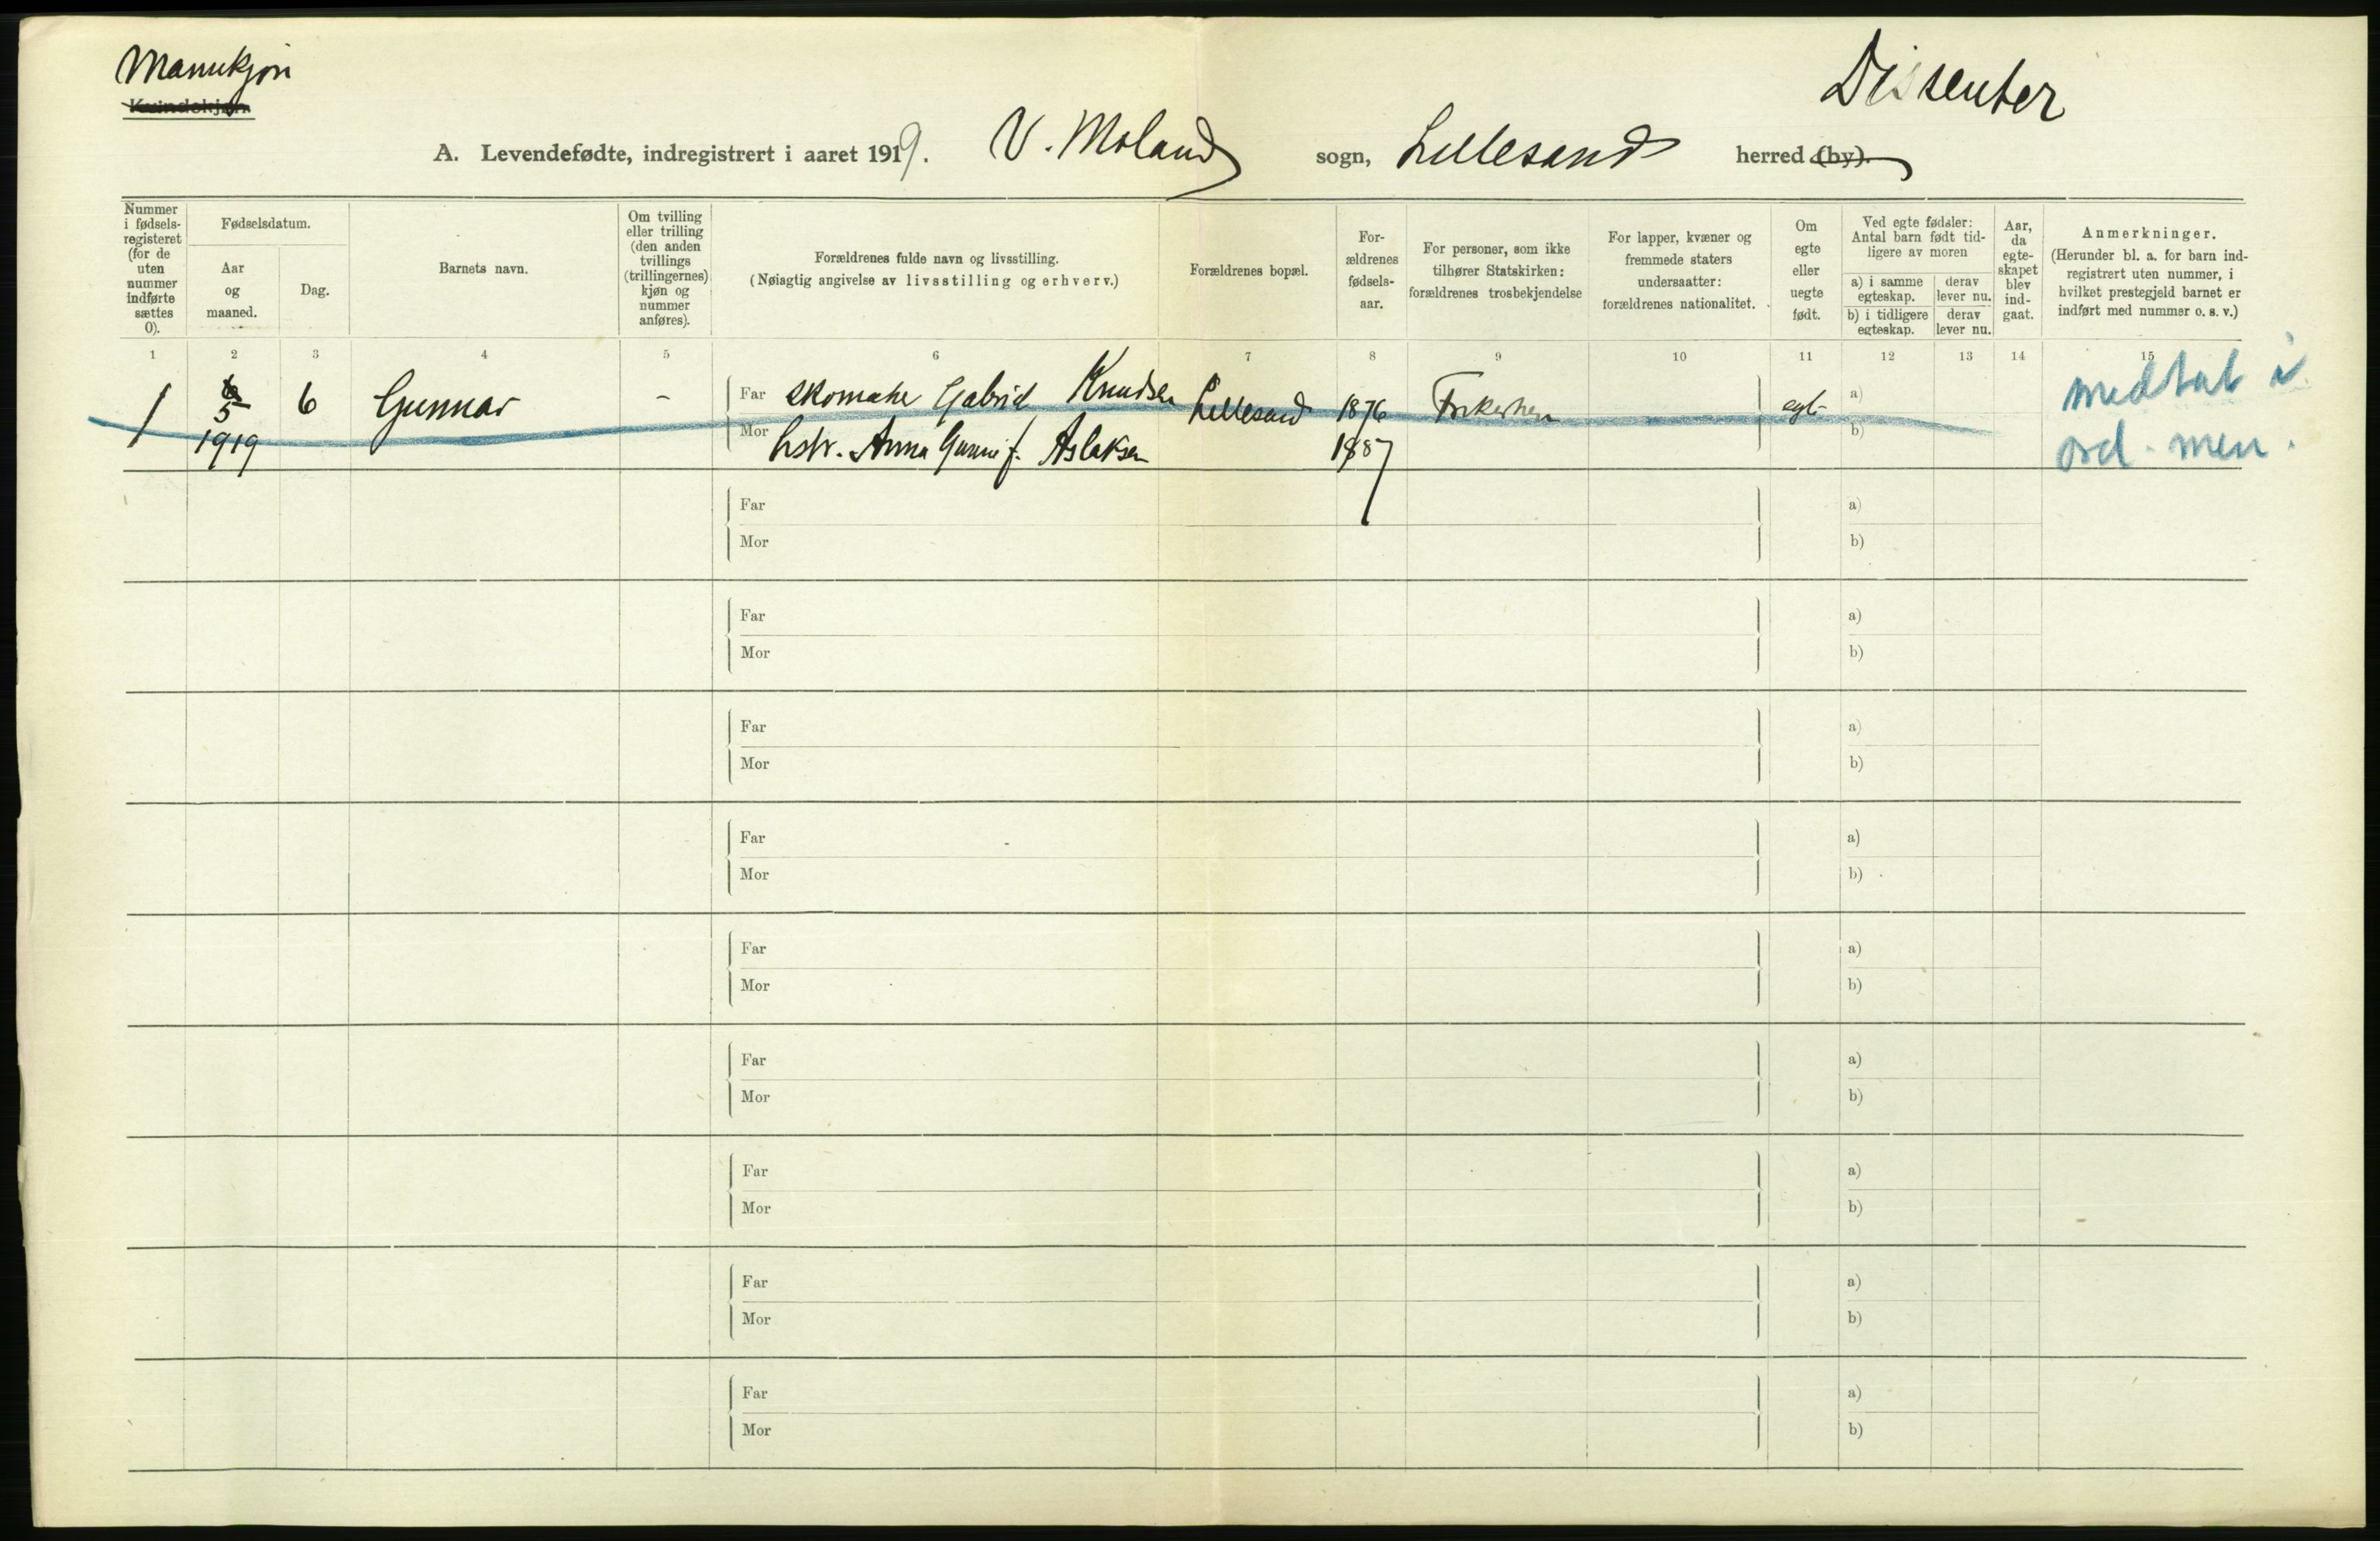 Mannkjøn
Kvindekjøn.
Dissenter
A. Levendefødte, indregistrert i aaret 1919. V. Moland sogn, Lillesand herred (by).
Nummer i fødselsregisteret (for de uten nummer indførte sættes 0).
Fødselsdatum.
Aar og maaned.
Dag.
Barnets navn.
Om tvilling eller trilling (den anden tvillings (trillingernes) kjøn og nummer anføres).
Forældrenes fulde navn og livsstilling.
(Nøiagtig angivelse av livsstilling og erhverv.)
Forældrenes bopæl.
Forældrenes fødselsaar.
For personer, som ikke tilhører Statskirken: forældrenes trosbekjendelse
For lapper, kvæner og fremmede staters undersaatter: forældrenes nationalitet.
Om egte eller uegte født.
Ved egte fødsler: Antal barn født tidligere av moren
a) i samme egteskap.
derav lever nu.
b) i tidligere egteskap.
derav lever nu.
Aar, da egteskapet blev indgaat.
Anmerkninger.
(Herunder bl. a. for barn indregistrert uten nummer, i hvilket prestegjeld barnet er indført med nummer o. s. v.)
1 2 3 4 5 6 7 8 9 10 11 12 13 14 15
1 5 1919 6 Gunnar - Far Skomaker Gabriel Knudsen Lillesand 1876 Frikirken egte a) medtat i
Mor hstr. Anna Gunni f. Aslaksen 1887 b) ord. men.
Far a)
Mor b)
Far a)
Mor b)
Far a)
Mor b)
Far a)
Mor b)
Far a)
Mor b)
Far a)
Mor b)
Far a)
Mor b)
Far a)
Mor b)
Far a)
Mor b)